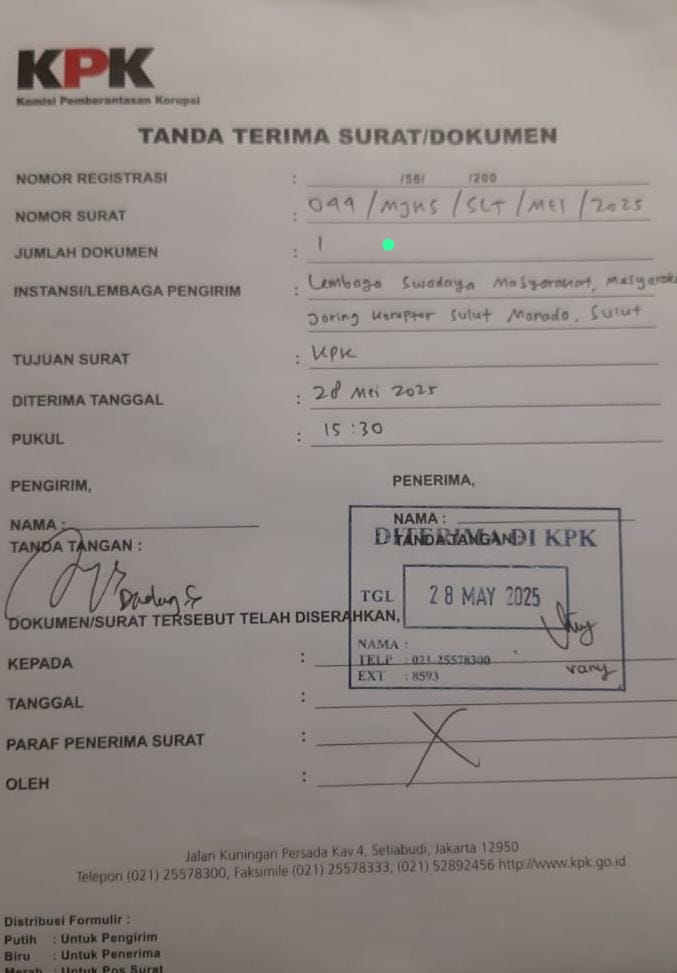 KPK
Komisi Pemberantasan Korupsi
TANDA TERIMA SURAT/DOKUMEN
NOMOR REGISTRASI : /56/ /200
NOMOR SURAT : 099 / MJKS / SLT / MEI / 2025
JUMLAH DOKUMEN : 1
INSTANSI/LEMBAGA PENGIRIM : Lembaga Swadaya Masyarakat, Masyaraka
Jaring Koruptor Sulut Manado, Sulut
TUJUAN SURAT : KPK
DITERIMA TANGGAL : 28 Mei 2025
PUKUL : 15:30
PENGIRIM,
PENERIMA,
NAMA :
NAMA :
TANDA TANGAN :
TANDA TANGAN :
DITERIMA DI KPK
TGL 28 MAY 2025
Dadang S
DOKUMEN/SURAT TERSEBUT TELAH DISERAHKAN,
NAMA :
TELP : 021 25578300
EXT : 8593
vany
KEPADA :
TANGGAL :
PARAF PENERIMA SURAT :
OLEH :
Jalan Kuningan Persada Kav.4, Setiabudi, Jakarta 12950
Telepon (021) 25578300, Faksimile (021) 25578333, (021) 52892456 http://www.kpk.go.id
Distribusi Formulir :
Putih : Untuk Pengirim
Biru : Untuk Penerima
Merah : Untuk Pos Surat